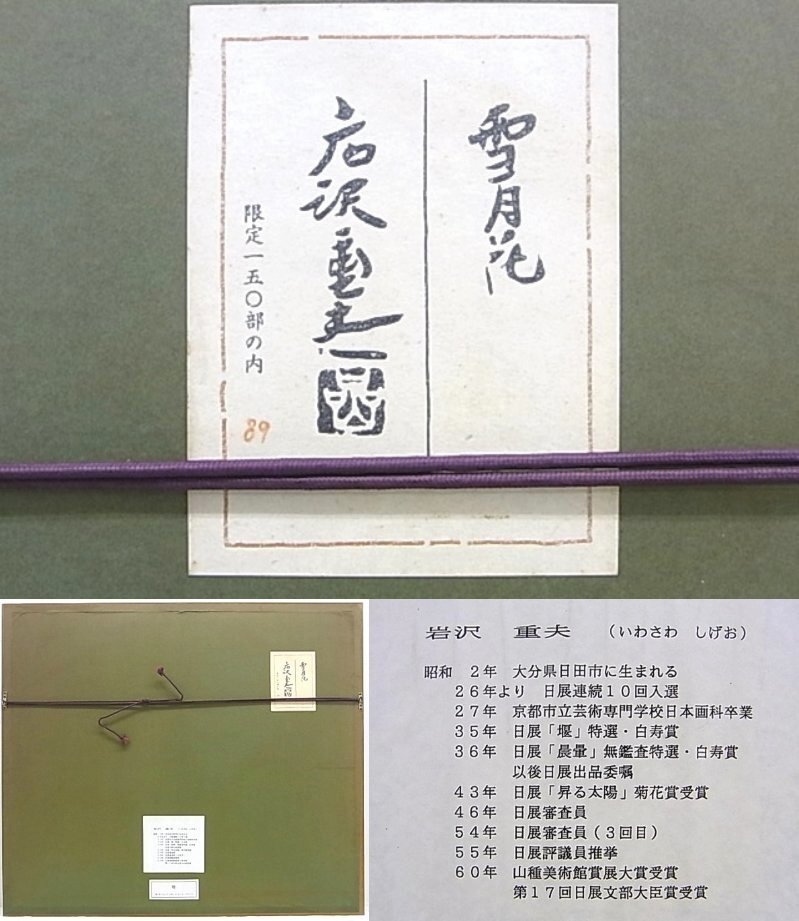 雪月花
岩沢重夫
限定一五〇部の内
89
雪月花
岩沢重夫
岩沢 重夫 (いわさわ しげお)
昭和 2年 大分県日田市に生まれる
26年より 日展連続10回入選
27年 京都市立芸術専門学校日本画科卒業
35年 日展「堰」特選・白寿賞
36年 日展「晨暈」無鑑査特選・白寿賞
以後日展出品委嘱
43年 日展「昇る太陽」菊花賞受賞
46年 日展審査員
54年 日展審査員(3回目)
55年 日展評議員推挙
60年 山種美術館賞展大賞受賞
第17回日展文部大臣賞受賞